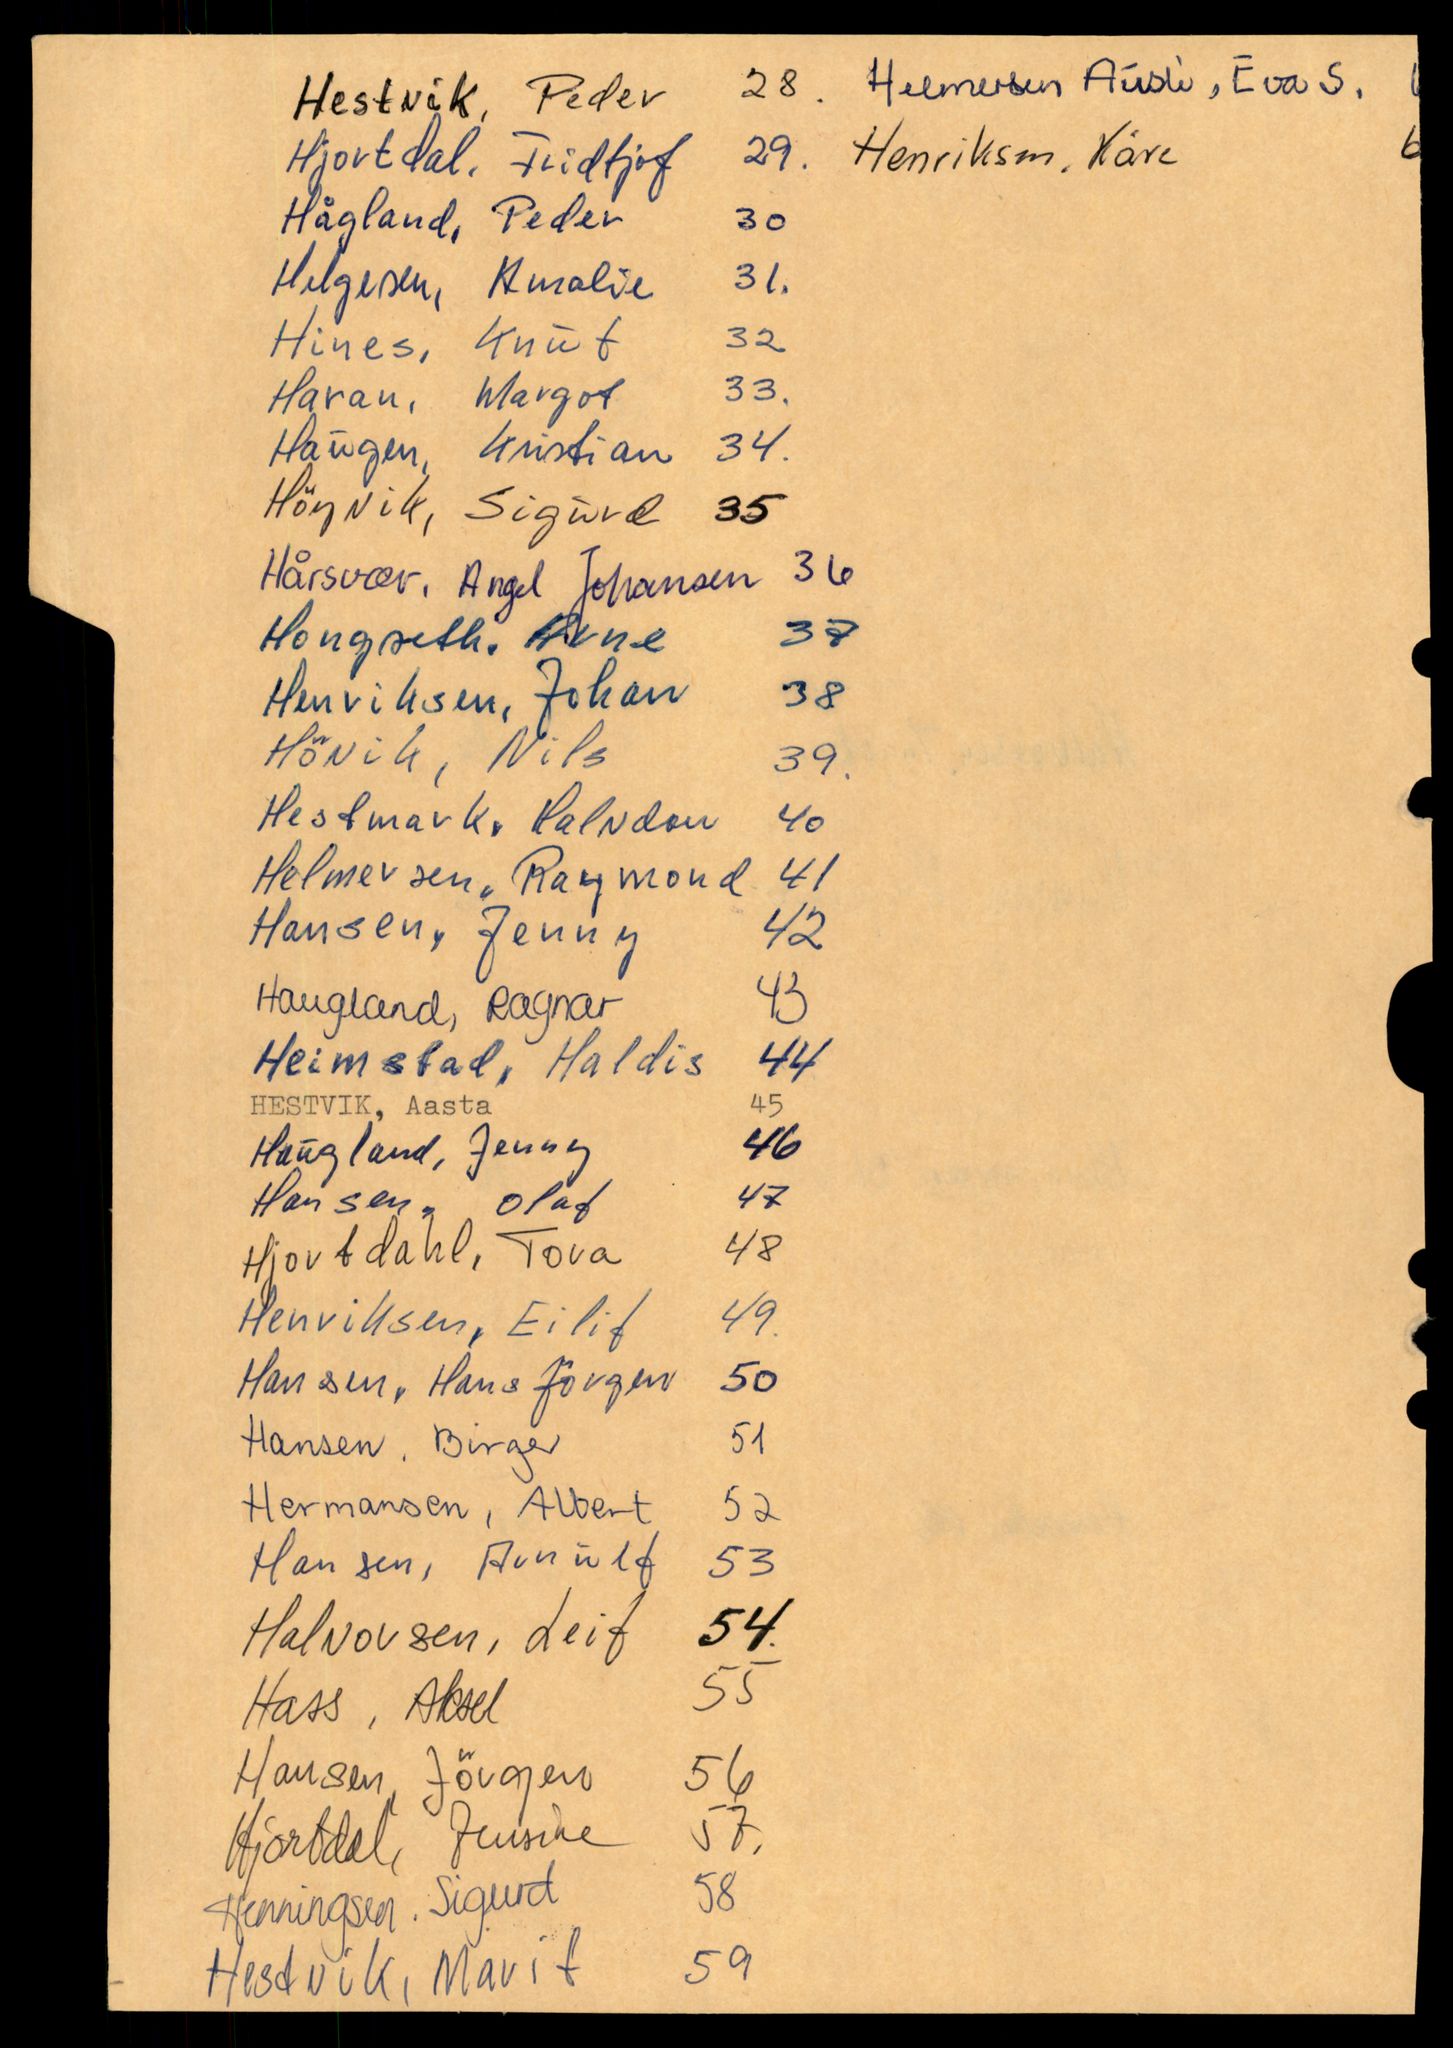 Hestvik, Peder 28.
Hjortdal, Fridtjof 29.
Hågland, Peder 30
Helgesen, Amalie 31.
Hines, Knut 32
Haran, Margot 33.
Haugen, Kristian 34.
Höyvik, Sigurd 35
Hårsvær, Angel Johansen 36
Hongseth. Arne 37
Henriksen, Johan 38
Hövik, Nils 39.
Hestmark, Halvdan 40
Helmersen, Raymond 41
Hansen, Jenny 42
Haugland, Ragnar 43
Heimstad, Haldis 44
HESTVIK, Aasta 45
Haugland, Jenny 46
Hansen, Olaf 47
Hjortdahl, Tora 48
Henriksen, Eilif 49.
Hansen, Hans Jörgen 50
Hansen. Birger 51
Hermansen, Albert 52
Hansen, Arnulf 53
Halvorsen, Leif 54.
Hass, Aksel 55
Hansen, Jörgen 56
Hjortdal, Jensine 57.
Henningsen. Sigurd 58
Hestvik, Marit 59
Helmersen, Eva S.
Henriksen. Kåre 6